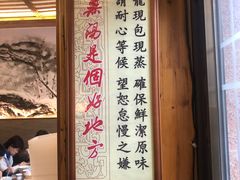 現包現蒸 確保鮮潔原味
耐心等候 望恕怠慢之嫌
陽是個好地方